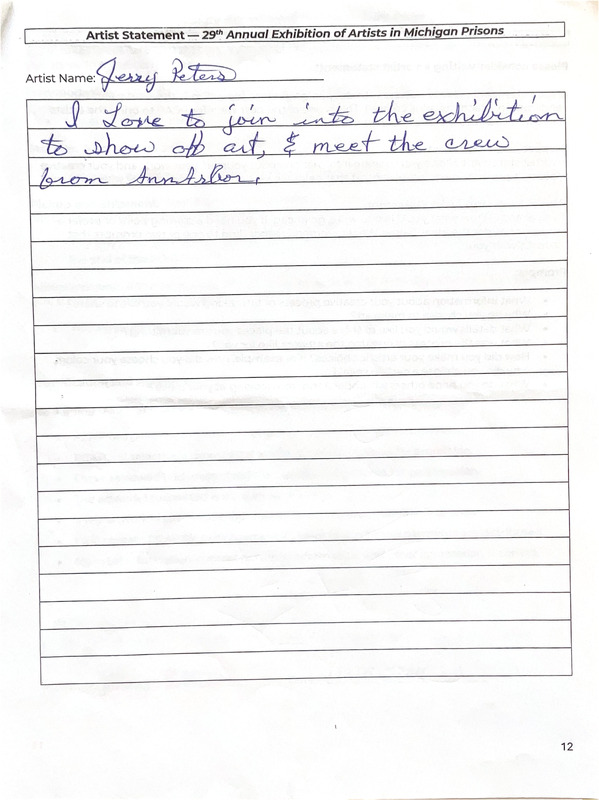 Artist Statement — 29th Annual Exhibition of Artists in Michigan Prisons
Artist Name: Jerry Peters
I Love to join into the exhibition
to show off art, & meet the crew
from AnnArbor.
12